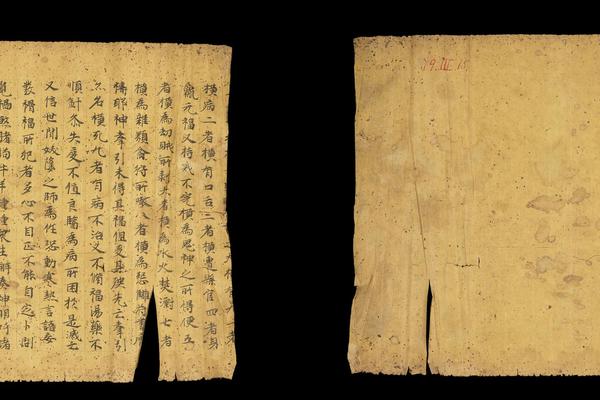 大橫有九一者
橫病二者橫有口舌三者橫遭縣官四者身
羸无福又持戒不完橫為鬼神之所得便五
者橫為劫賊所剝六者橫為水火焚漂七者
橫為雜類禽狩所噉八者橫為怨讎符書厭
禱耶神牽引未得其福但受其殃先亡牽引
亦名橫死九者有病不治又不脩福湯藥不
順針灸失度不值良醫為病所困於是滅亡
又信世間妖孽之師為作恐動寒熱言語妄
發禍福所犯者多心不自正不能自定卜問
覓禍煞猪狗牛羊種種眾生解奏神明呼諸